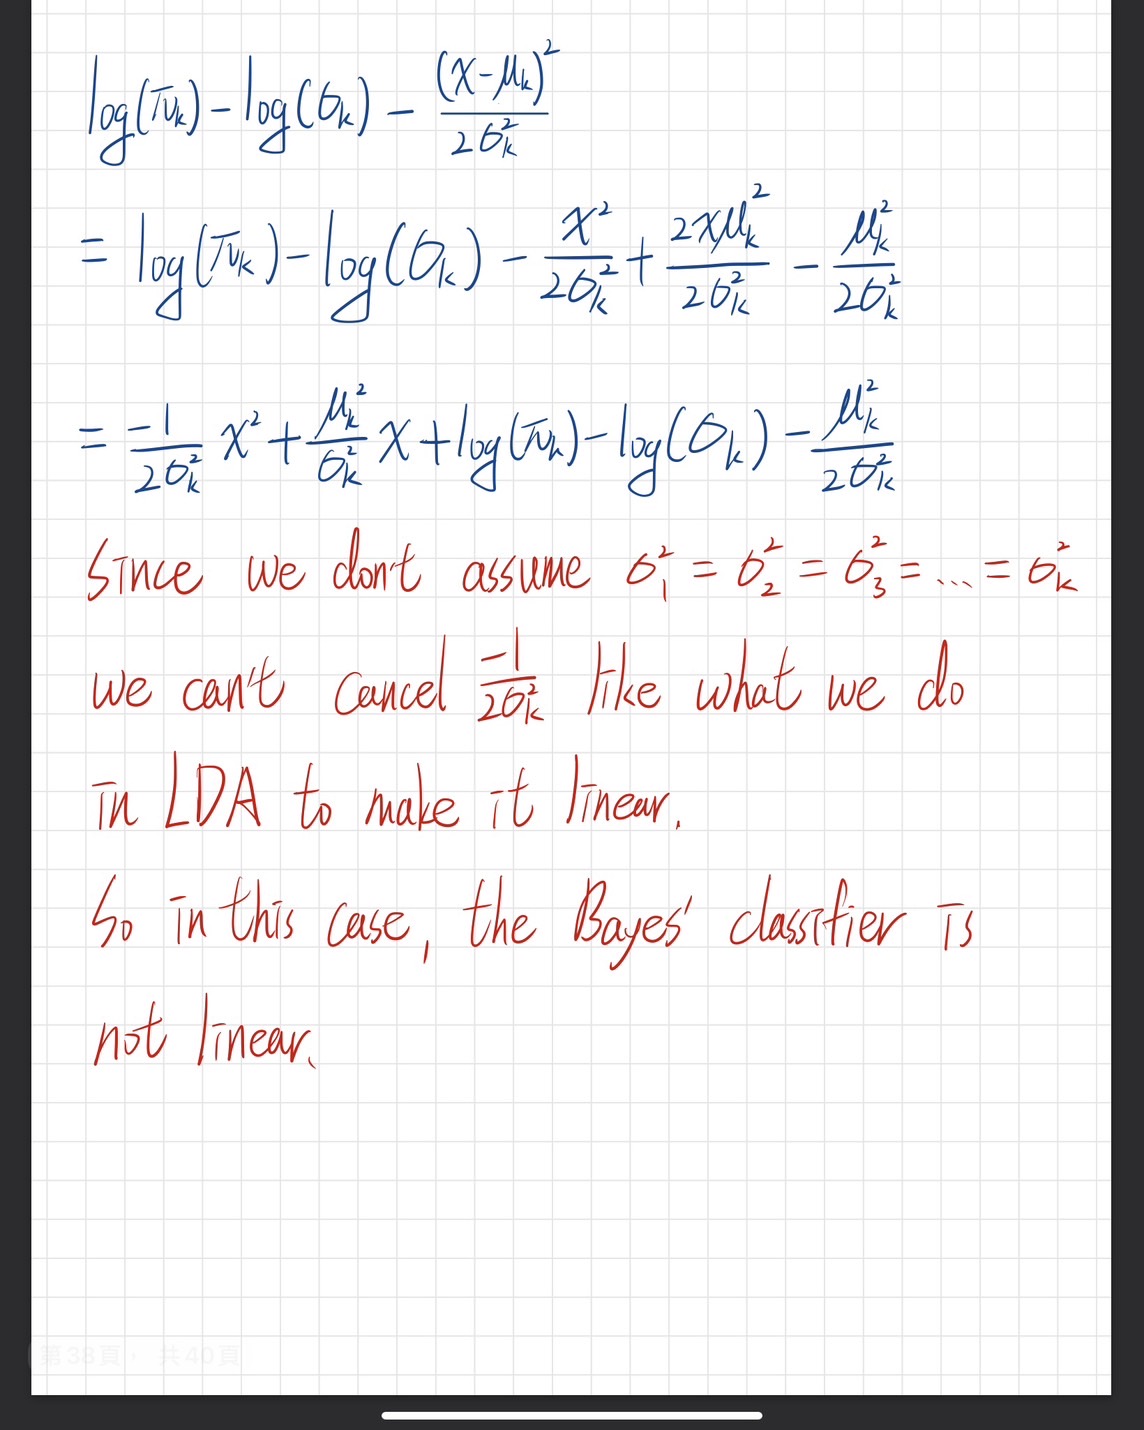 log(π_k) − log(σ_k) − (x−μ_k)²/2σ_k²
= log(π_k) − log(σ_k) − x²/2σ_k² + 2xμ_k²/2σ_k² − μ_k²/2σ_k²
= −1/2σ_k² x² + μ_k²/σ_k² x + log(π_k) − log(σ_k) − μ_k²/2σ_k²
Since we don't assume σ₁² = σ₂² = σ₃² = ... = σ_k²
we can't cancel −1/2σ_k² like what we do
in LDA to make it linear.
So in this case, the Bayes' classifier is
not linear.
第38頁, 共40頁